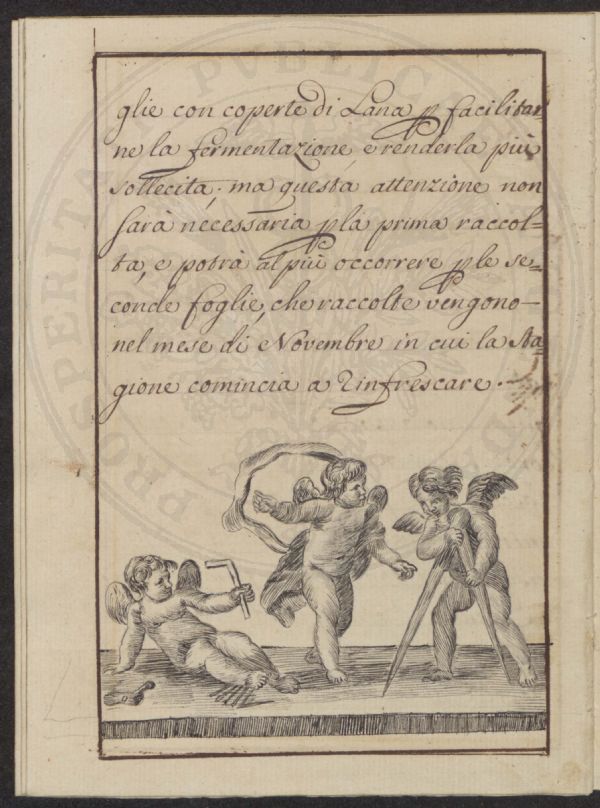 glie con coperte di Lana p facilitar
ne la fermentazione, e renderla più
sollecita; ma questa attenzione non
sarà necessaria p la prima raccol-
ta, e potrà al più occorrere p le se=
conde foglie, che raccolte vengono
nel mese di Novembre in cui la Sta
gione comincia a Rinfrescare.
PROSPERITA PUBLICA